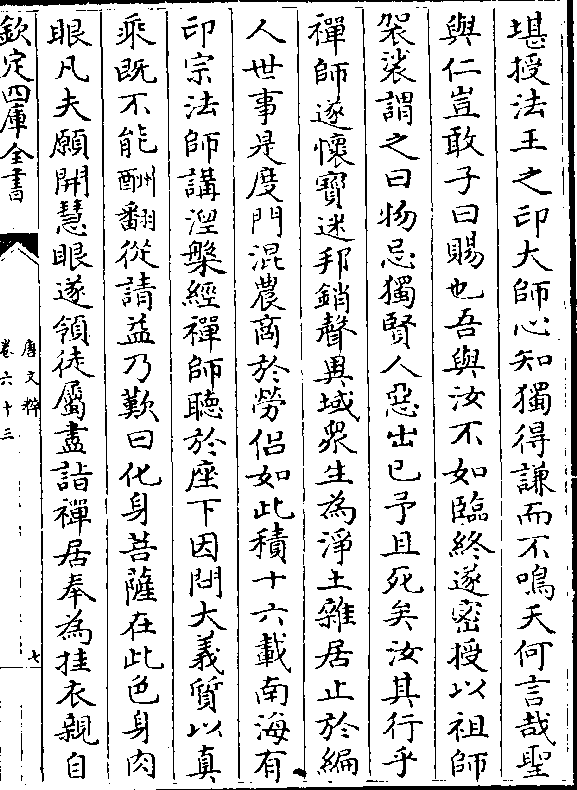 堪授法王之印大師心知獨得謙而不鳴天何言哉聖
與仁豈敢子曰賜也吾與汝不如臨終遂密授以祖師
袈裟謂之曰物忌獨賢人惡出已予且死矣汝其行乎
禪師遂懷寶迷邦銷聲異域衆生為淨土雜居止於編
人世事是度門混農商於勞侶如此積十六載南海有
印宗法師講涅槃經禪師聽於座下因問大義質以真
乘既不能酬翻從請益乃歎曰化身菩薩在此色身肉
眼凡夫願開慧眼遂領徒屬盡詣禪居奉為挂衣親自
欽定四庫全書
唐文粹
卷六十三
七